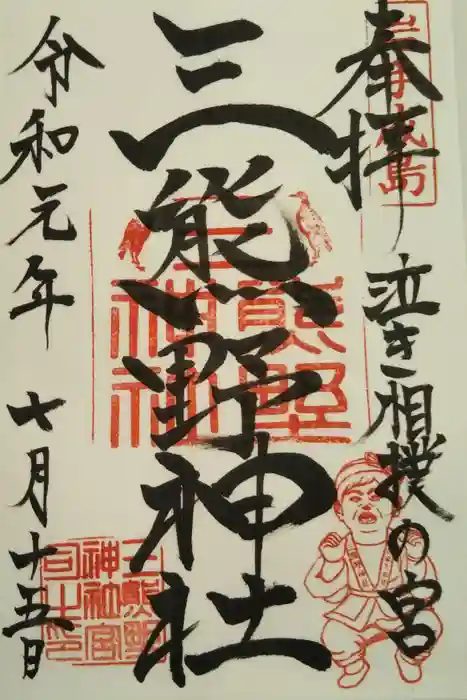 奉拝
泣き相撲の宮
三熊野神社
令和元年
七月十五日
岩手成島
三熊野神社
三熊野神社宮司之印